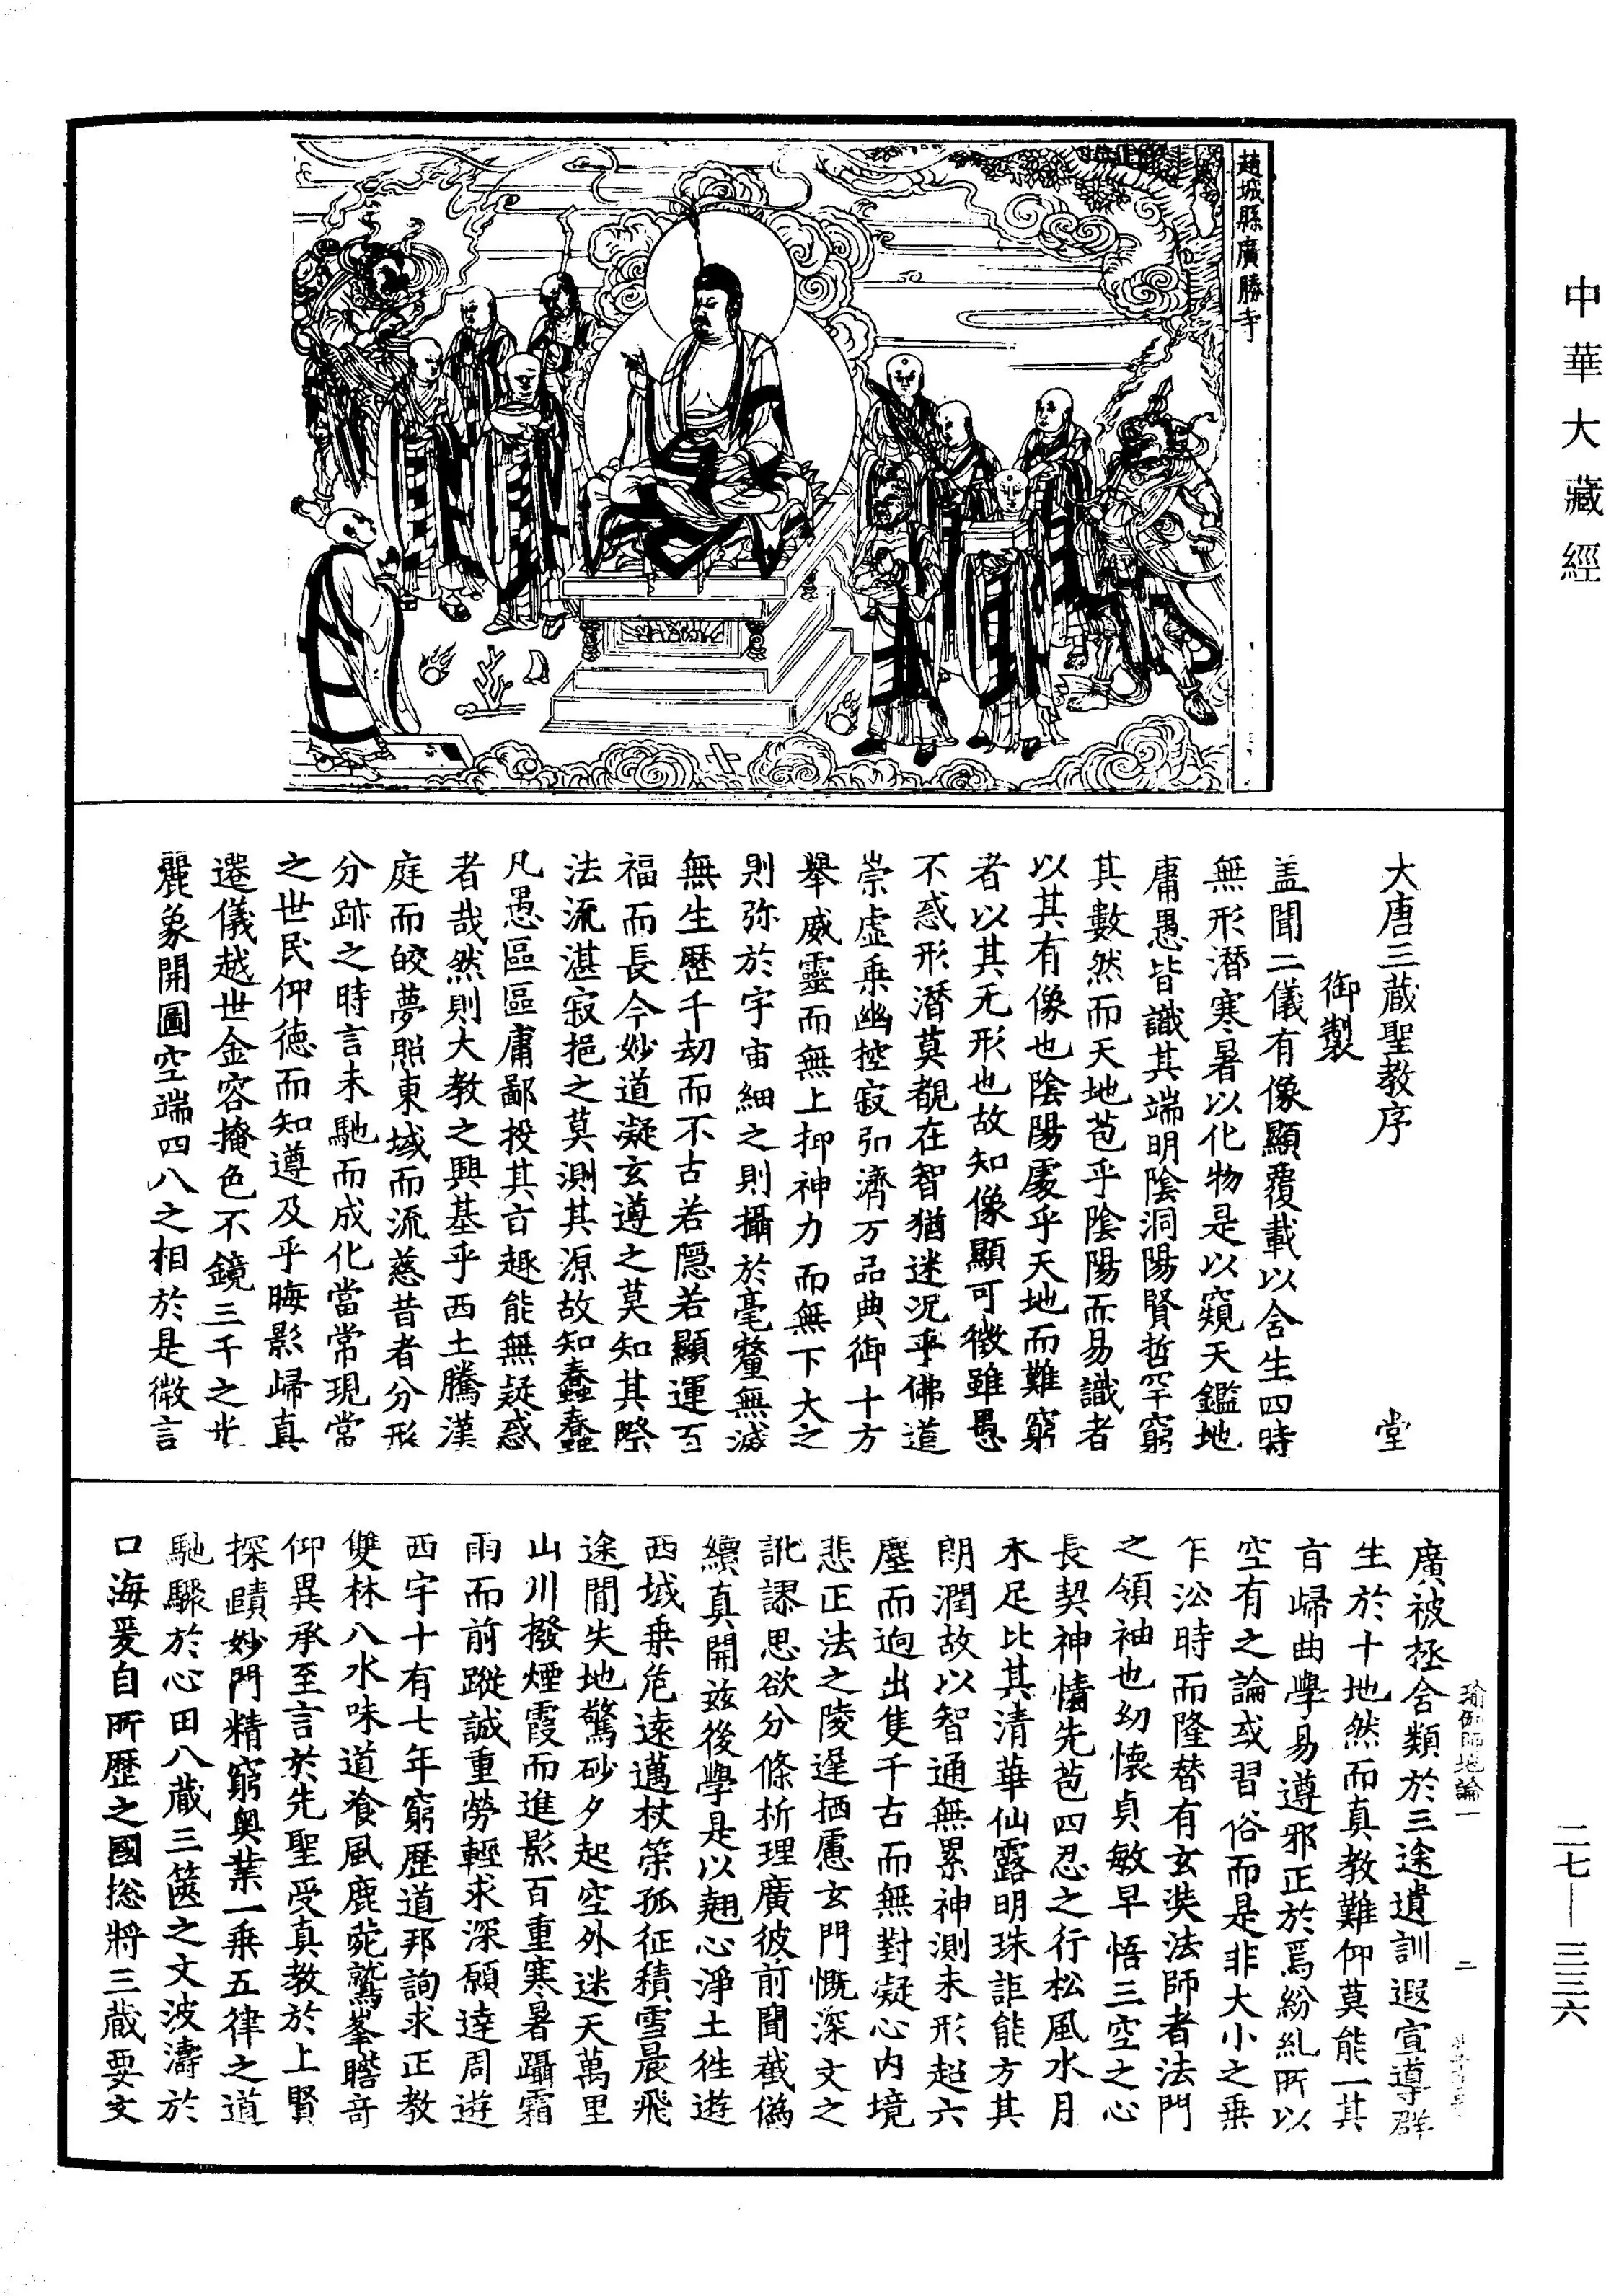 中華大藏經
趙城縣廣勝寺
大唐三藏聖教序
堂
御製
盖聞二儀有像顯覆載以含生四時
無形潛寒暑以化物是以窺天鑑地
庸愚皆識其端明陰洞陽賢哲罕窮
其數然而天地苞乎陰陽而易識者
以其有像也陰陽處乎天地而難窮
者以其无形也故知像顯可徵雖愚
不惑形潛莫覩在智猶迷況乎佛道
崇虛乗幽控寂弘濟万品典御十方
舉威靈而無上抑神力而無下大之
則弥於宇宙細之則攝於毫氂無滅
無生歷千劫而不古若隱若顯運百
福而長今妙道凝玄遵之莫知其際
法流湛寂挹之莫測其源故知蠢蠢
凡愚區區庸鄙投其旨趣能無疑惑
者哉然則大教之興基乎西土騰漢
庭而皎夢照東域而流慈昔者分形
分跡之時言未馳而成化當常現常
之世民仰德而知遵及乎晦影歸真
遷儀越世金容掩色不鏡三千之光
麗象開圖空端四八之相於是微言
廣被拯含類於三途遺訓遐宣導群
生於十地然而真教難仰莫能一其
旨歸曲學易遵邪正於焉紛糺所以
空有之論或習俗而是非大小之乗
乍㳂時而隆替有玄奘法師者法門
之領袖也幼懷貞敏早悟三空之心
長契神情先苞四忍之行松風水月
未足比其清華仙露明珠詎能方其
朗潤故以智通無累神測未形超六
塵而迥出隻千古而無對凝心內境
悲正法之陵遲栖慮玄門慨深文之
訛謬思欲分條析理廣彼前聞截偽
續真開茲後學是以翹心淨土徃遊
西域乗危遠邁杖策孤征積雪晨飛
途間失地驚砂夕起空外迷天萬里
山川撥煙霞而進影百重寒暑躡霜
雨而前蹤誠重勞輕求深願達周遊
西宇十有七年窮歷道邦詢求正教
雙林八水味道飡風鹿菀鷲峯瞻奇
仰異承至言於先聖受真教於上賢
探賾妙門精窮奥業一乗五律之道
馳驟於心田八藏三篋之文波濤於
口海爰自所歷之國揔將三藏要文
瑜伽師地論一
二
二七—三三六